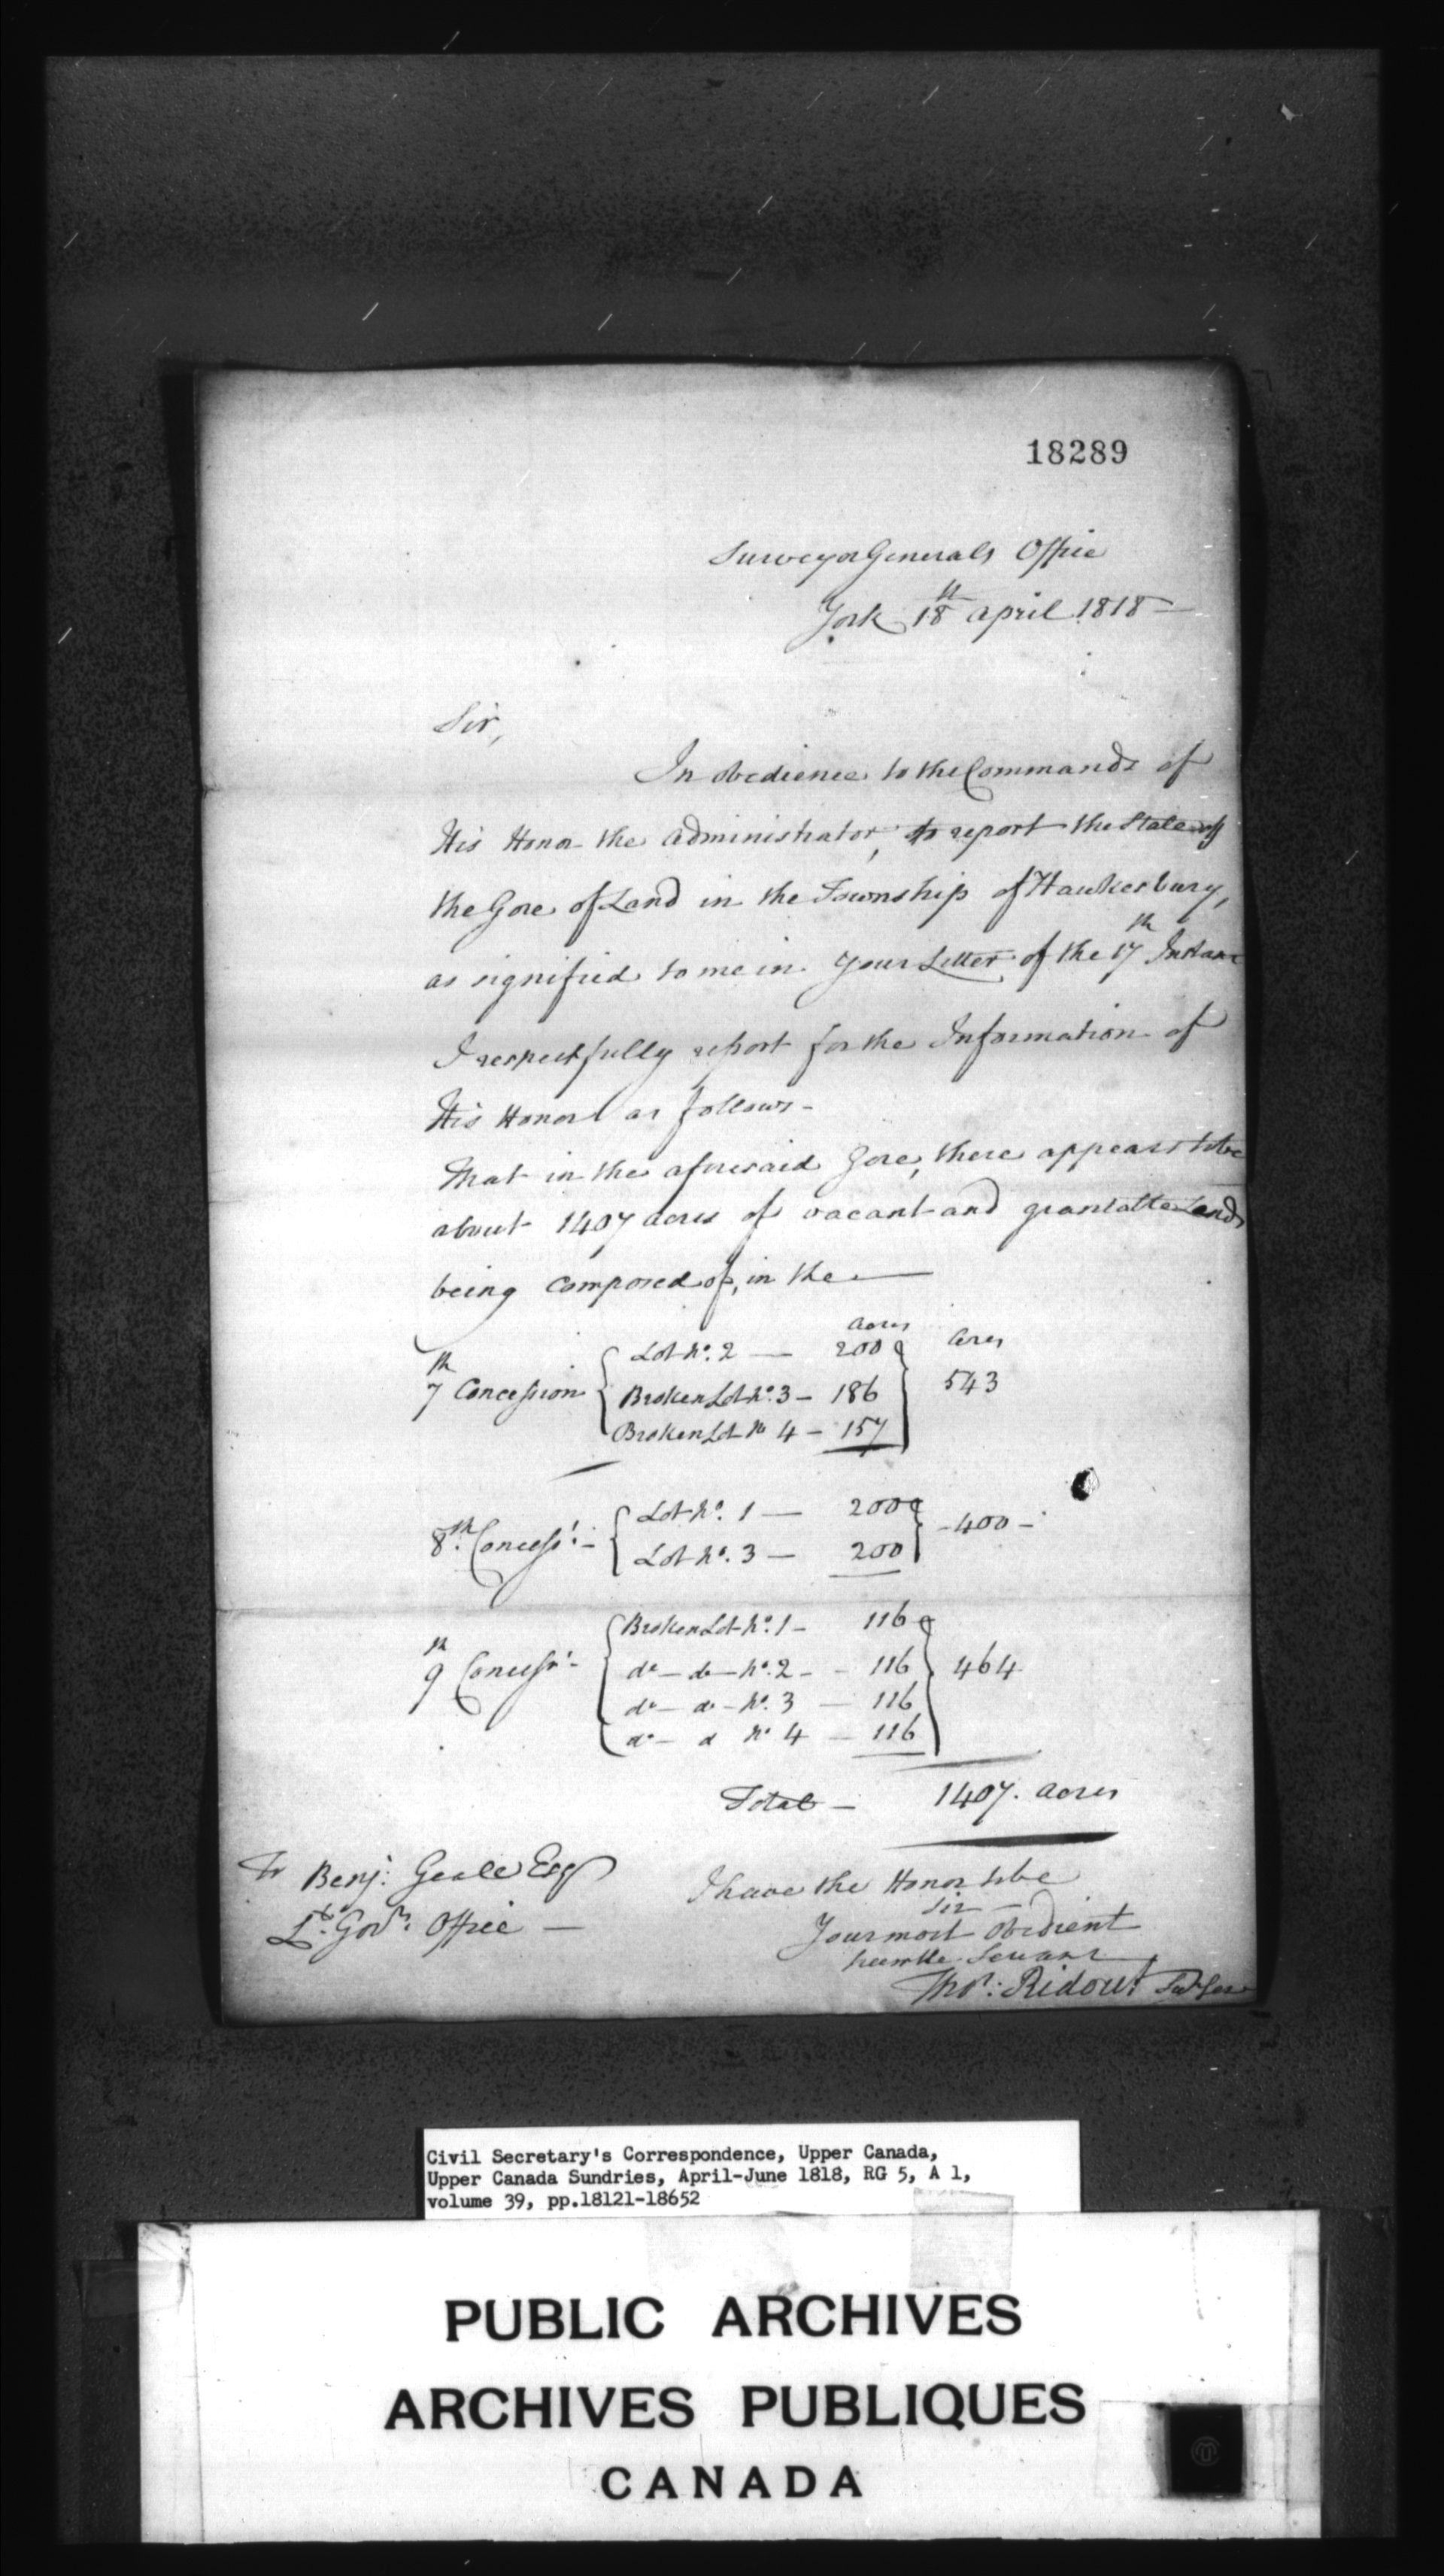 18289
Surveyor Generals Office
York 18th April 1818 —
Sir,
In obedience to the Commands of
His Honor the Administrator, to report the State of
the Gore of Land in the Township of Hawkesbury,
as signified to me in your Letter of the 17th Instant
I respectfully report for the Information of
His Honor as follows -
That in the aforesaid Gore, there appears to be
about 1407 acres of vacant and grantable Lands
being composed of, in the —
acres acres
7th Concession { Lot No. 2 — 200 } 543
Broken Lot No. 3 - 186
Broken Lot No 4 - 157
8th Concessn. - { Lot No. 1 — 200 } - 400 -
Lot No. 3 — 200
9th Concessn. - { Broken Lot No. 1 - 116 } 464
do — do — No. 2 - - 116
do — do - No. 3 — 116
do — d No 4 — 116
Total — 1407. acres
To Benj: Geale Esq
Lt. Govrs. Office —
I have the Honor to be
Sir —
Your most Obedient
humble Servant
Thos: Ridout Sur Gen
Civil Secretary's Correspondence, Upper Canada,
Upper Canada Sundries, April-June 1818, RG 5, A 1,
volume 39, pp.18121-18652
PUBLIC ARCHIVES
ARCHIVES PUBLIQUES
CANADA